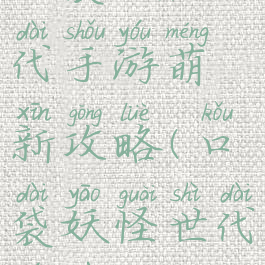 dài shǒu yóu méng
代手游萌
xīn gōng lüè kǒu
新攻略(口
dài yāo guài shì dài
袋妖怪世代